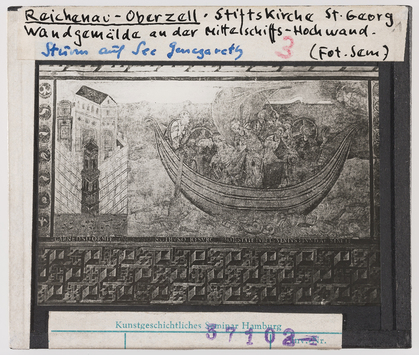 Reichenau-Oberzell. Stiftskirche St. Georg
Wandgemälde an der Mittelschiffs-Hochwand.
Sturm auf See Genezareth 3 (Fot. Sem.)
Kunstgeschichtliches Seminar Hamburg
37102